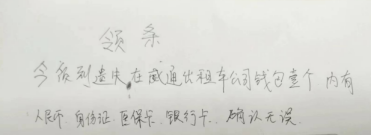 领条
今领到遗失在威通出租车公司钱包壹个 内有
人民币.身份证.医保卡.银行卡.确认无误.